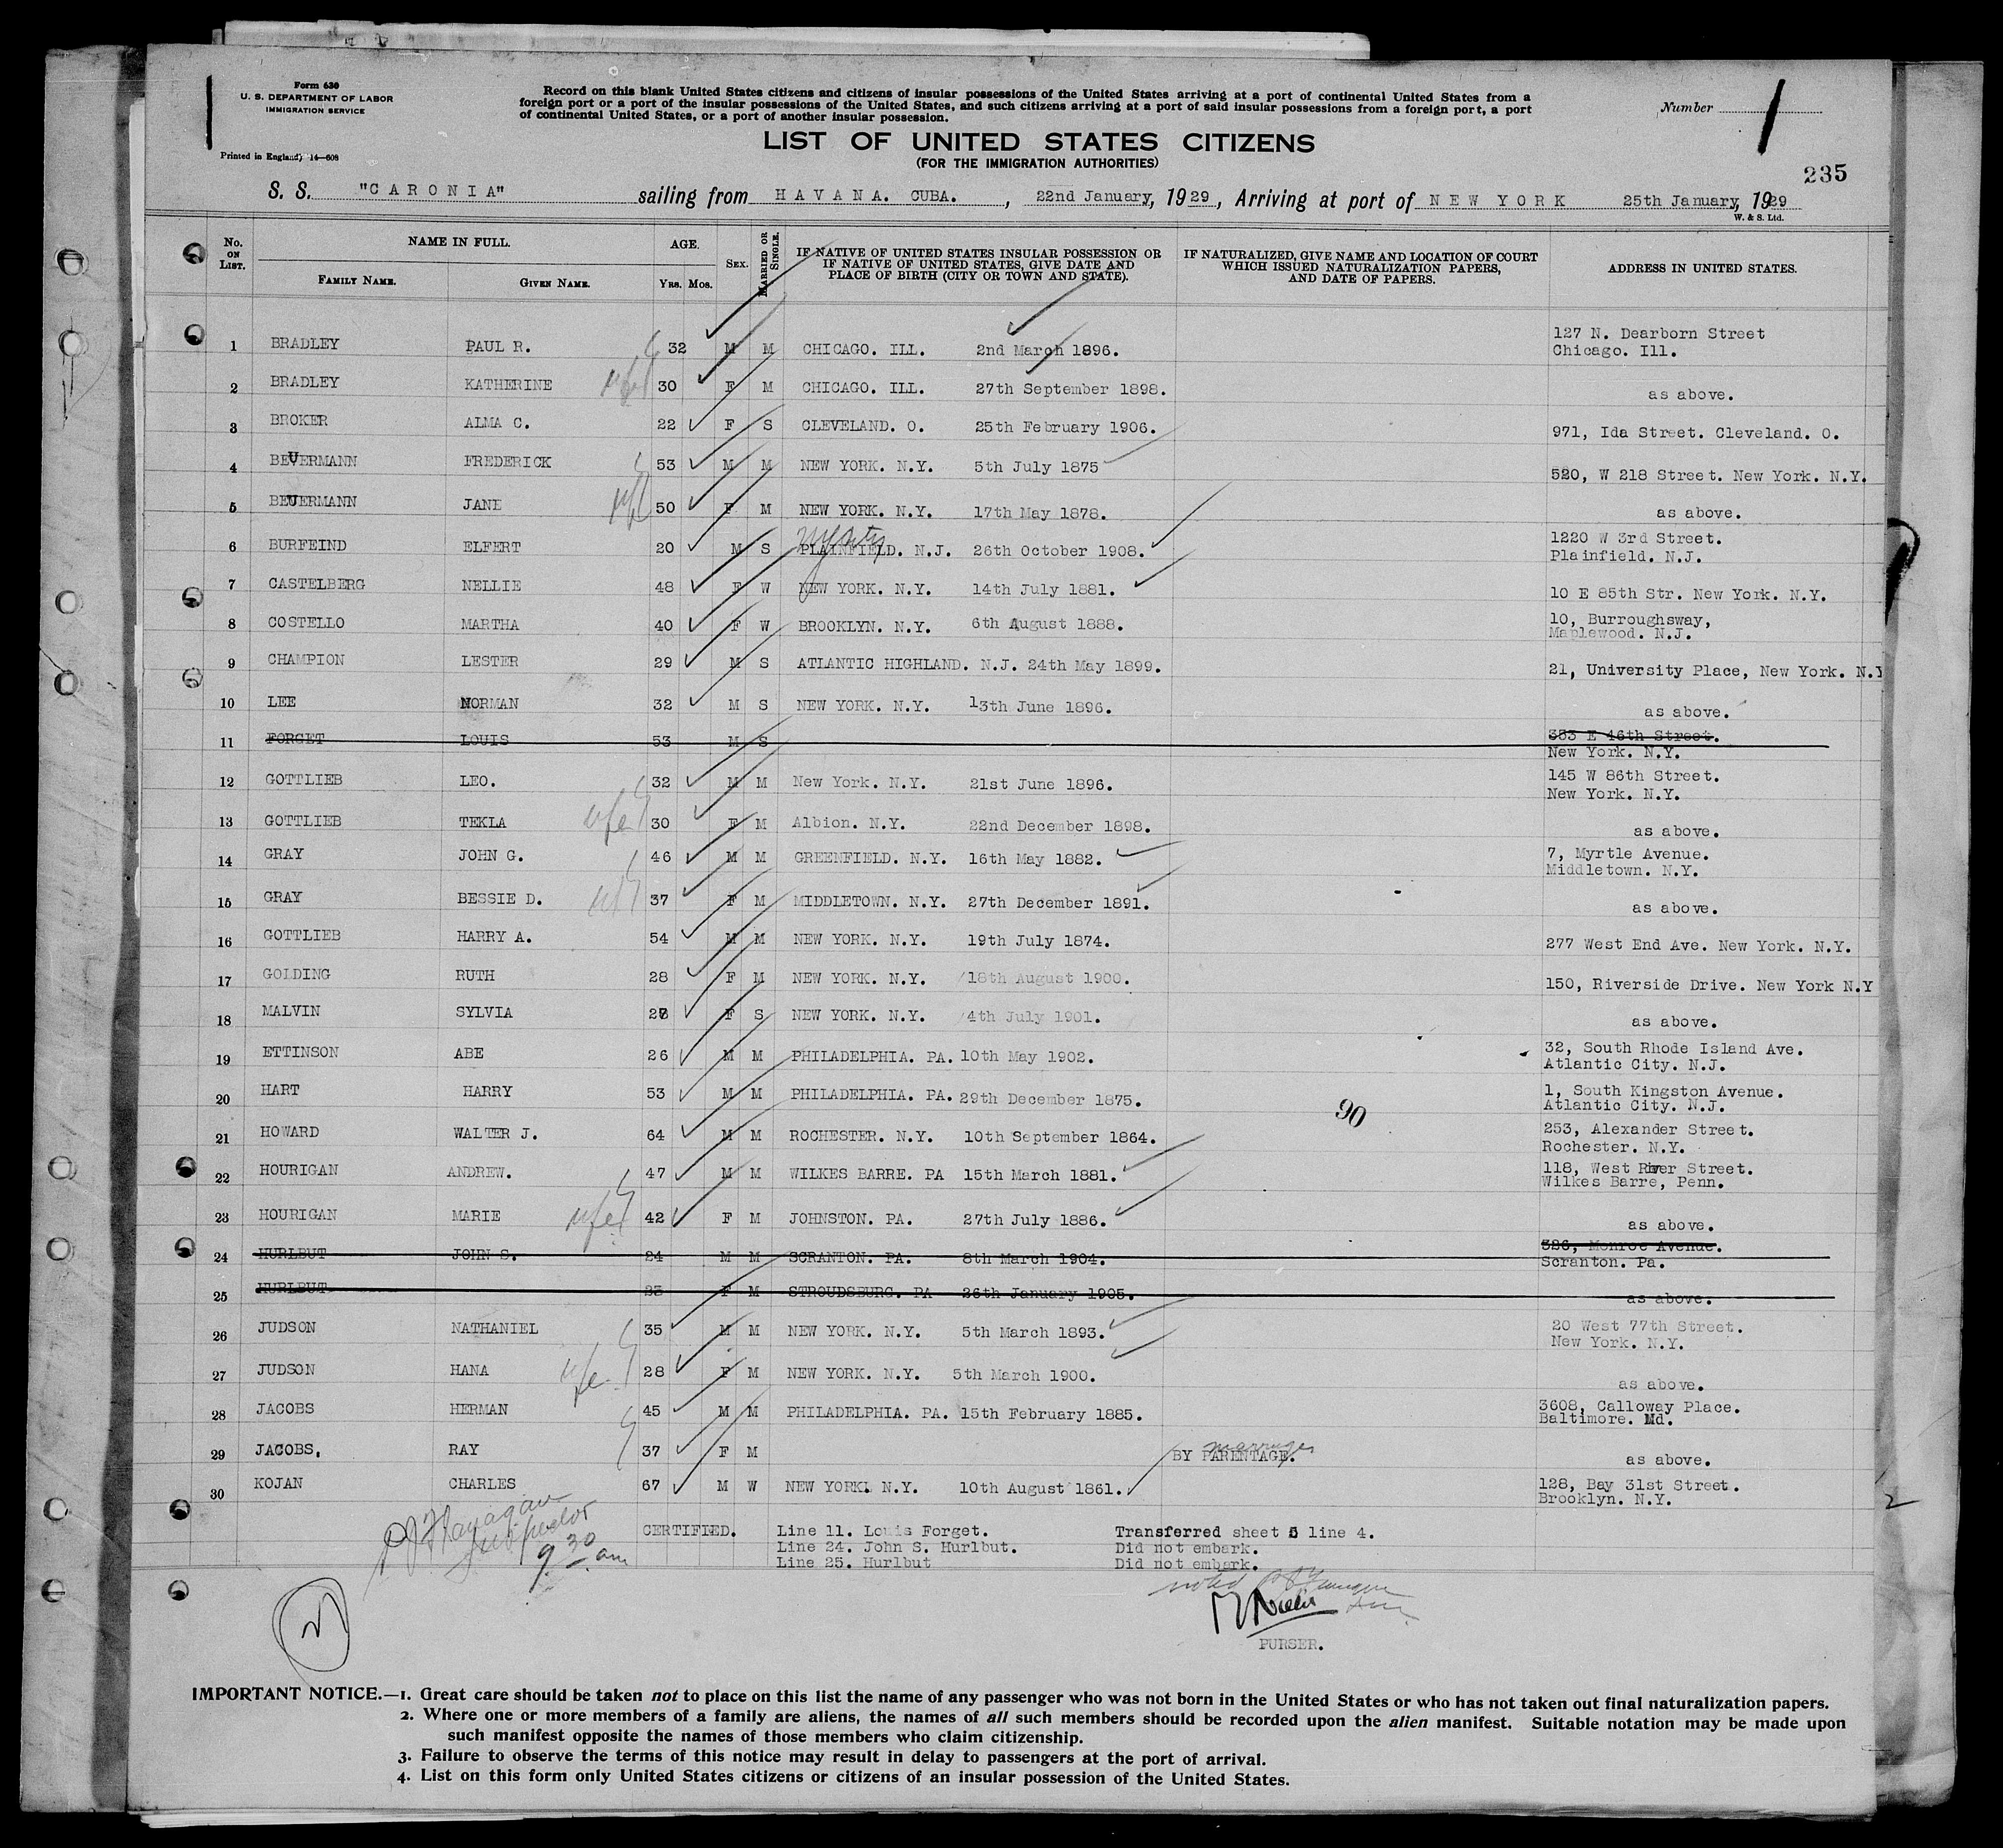 Form 630
U. S. DEPARTMENT OF LABOR
IMMIGRATION SERVICE
Printed in England) 14—608
Record on this blank United States citizens and citizens of insular possessions of the United States arriving at a port of continental United States from a
foreign port or a port of the insular possessions of the United States, and such citizens arriving at a port of said insular possessions from a foreign port, a port
of continental United States, or a port of another insular possession.
Number 1
LIST OF UNITED STATES CITIZENS
(FOR THE IMMIGRATION AUTHORITIES)
235
S. S. "CARONIA" sailing from HAVANA. CUBA. , 22nd January, 1929, Arriving at port of NEW YORK 25th January, 1929
W. & S. Ltd.
No. ON LIST. NAME IN FULL. FAMILY NAME. GIVEN NAME. AGE. YRS. MOS. SEX. MARRIED OR SINGLE. IF NATIVE OF UNITED STATES INSULAR POSSESSION OR IF NATIVE OF UNITED STATES, GIVE DATE AND PLACE OF BIRTH (CITY OR TOWN AND STATE). IF NATURALIZED, GIVE NAME AND LOCATION OF COURT WHICH ISSUED NATURALIZATION PAPERS, AND DATE OF PAPERS. ADDRESS IN UNITED STATES.
1 BRADLEY PAUL R. 32 M M CHICAGO. ILL. 2nd March 1896. 127 N. Dearborn Street
Chicago. Ill.
2 BRADLEY KATHERINE wife 30 F M CHICAGO. ILL. 27th September 1898. as above.
3 BROKER ALMA C. 22 F S CLEVELAND. O. 25th February 1906. 971, Ida Street. Cleveland. O.
4 BEUERMANN FREDERICK 53 M M NEW YORK. N.Y. 5th July 1875 520, W 218 Street. New York. N.Y.
5 BEUERMANN JANE wife 50 F M NEW YORK. N.Y. 17th May 1878. as above.
6 BURFEIND ELFERT 20 M S PLAINFIELD. N.J. 26th October 1908. 1220 W 3rd Street.
Plainfield. N.J.
7 CASTELBERG NELLIE 48 F W NEW YORK. N.Y. 14th July 1881. 10 E 85th Str. New York. N.Y.
8 COSTELLO MARTHA 40 F W BROOKLYN. N.Y. 6th August 1888. 10, Burroughsway,
Maplewood. N.J.
9 CHAMPION LESTER 29 M S ATLANTIC HIGHLAND. N.J. 24th May 1899. 21, University Place, New York. N.Y
10 LEE NORMAN 32 M S NEW YORK. N.Y. 13th June 1896. as above.
11 FORGET LOUIS 53 M S 353 E 46th Street.
New York. N.Y.
12 GOTTLIEB LEO. 32 M M New York. N.Y. 21st June 1896. 145 W 86th Street.
New York. N.Y.
13 GOTTLIEB TEKLA wife 30 F M Albion. N.Y. 22nd December 1898. as above.
14 GRAY JOHN G. 46 M M GREENFIELD. N.Y. 16th May 1882. 7, Myrtle Avenue.
Middletown. N.Y.
15 GRAY BESSIE D. wf 37 F M MIDDLETOWN. N.Y. 27th December 1891. as above.
16 GOTTLIEB HARRY A. 54 M M NEW YORK. N.Y. 19th July 1874. 277 West End Ave. New York. N.Y.
17 GOLDING RUTH 28 F M NEW YORK. N.Y. 18th August 1900. 150, Riverside Drive. New York N.Y
18 MALVIN SYLVIA F S NEW YORK. N.Y. 4th July 1901. as above.
19 ETTINSON ABE 26 M M PHILADELPHIA. PA. 10th May 1902. 32, South Rhode Island Ave.
Atlantic City. N.J.
20 HART HARRY 53 M M PHILADELPHIA. PA. 29th December 1875. 1, South Kingston Avenue.
Atlantic City. N.J.
90
21 HOWARD WALTER J. 64 M M ROCHESTER. N.Y. 10th September 1864. 253, Alexander Street.
Rochester. N.Y.
22 HOURIGAN ANDREW. 47 M M WILKES BARRE. PA 15th March 1881. 118, West River Street.
Wilkes Barre, Penn.
23 HOURIGAN MARIE wife 42 F M JOHNSTON. PA. 27th July 1886. as above.
24 HURLBUT JOHN S. 24 M M SCRANTON. PA. 8th March 1904. 326, Monroe Avenue.
Scranton. Pa.
25 HURLBUT 23 F M STROUDSBURG. PA 26th January 1905. as above.
26 JUDSON NATHANIEL 35 M M NEW YORK. N.Y. 5th March 1893. 20 West 77th Street.
New York. N.Y.
27 JUDSON HANA wife 28 F M NEW YORK. N.Y. 5th March 1900. as above.
28 JACOBS HERMAN 45 M M PHILADELPHIA. PA. 15th February 1885. 3608, Calloway Place.
Baltimore. Md.
29 JACOBS, RAY 37 F M BY PARENTAGE. marriage as above.
30 KOJAN CHARLES 67 M W NEW YORK. N.Y. 10th August 1861. 128, Bay 31st Street.
Brooklyn. N.Y.
2
Flanagan
Inspector
9 30 am
CERTIFIED. Line 11. Louis Forget. Transferred sheet 5 line 4.
Line 24. John S. Hurlbut. Did not embark.
Line 25. Hurlbut Did not embark.
noted
PURSER.
IMPORTANT NOTICE.—1. Great care should be taken not to place on this list the name of any passenger who was not born in the United States or who has not taken out final naturalization papers.
2. Where one or more members of a family are aliens, the names of all such members should be recorded upon the alien manifest. Suitable notation may be made upon
such manifest opposite the names of those members who claim citizenship.
3. Failure to observe the terms of this notice may result in delay to passengers at the port of arrival.
4. List on this form only United States citizens or citizens of an insular possession of the United States.